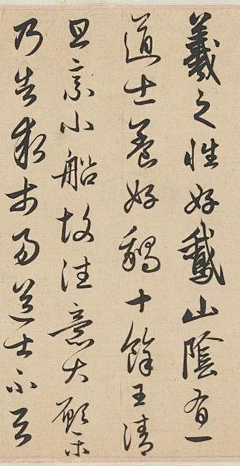 羲之性好鵞山陰有一
道士養好鵝十餘王清
旦乘小船故往意大願樂
乃告求市易道士不与